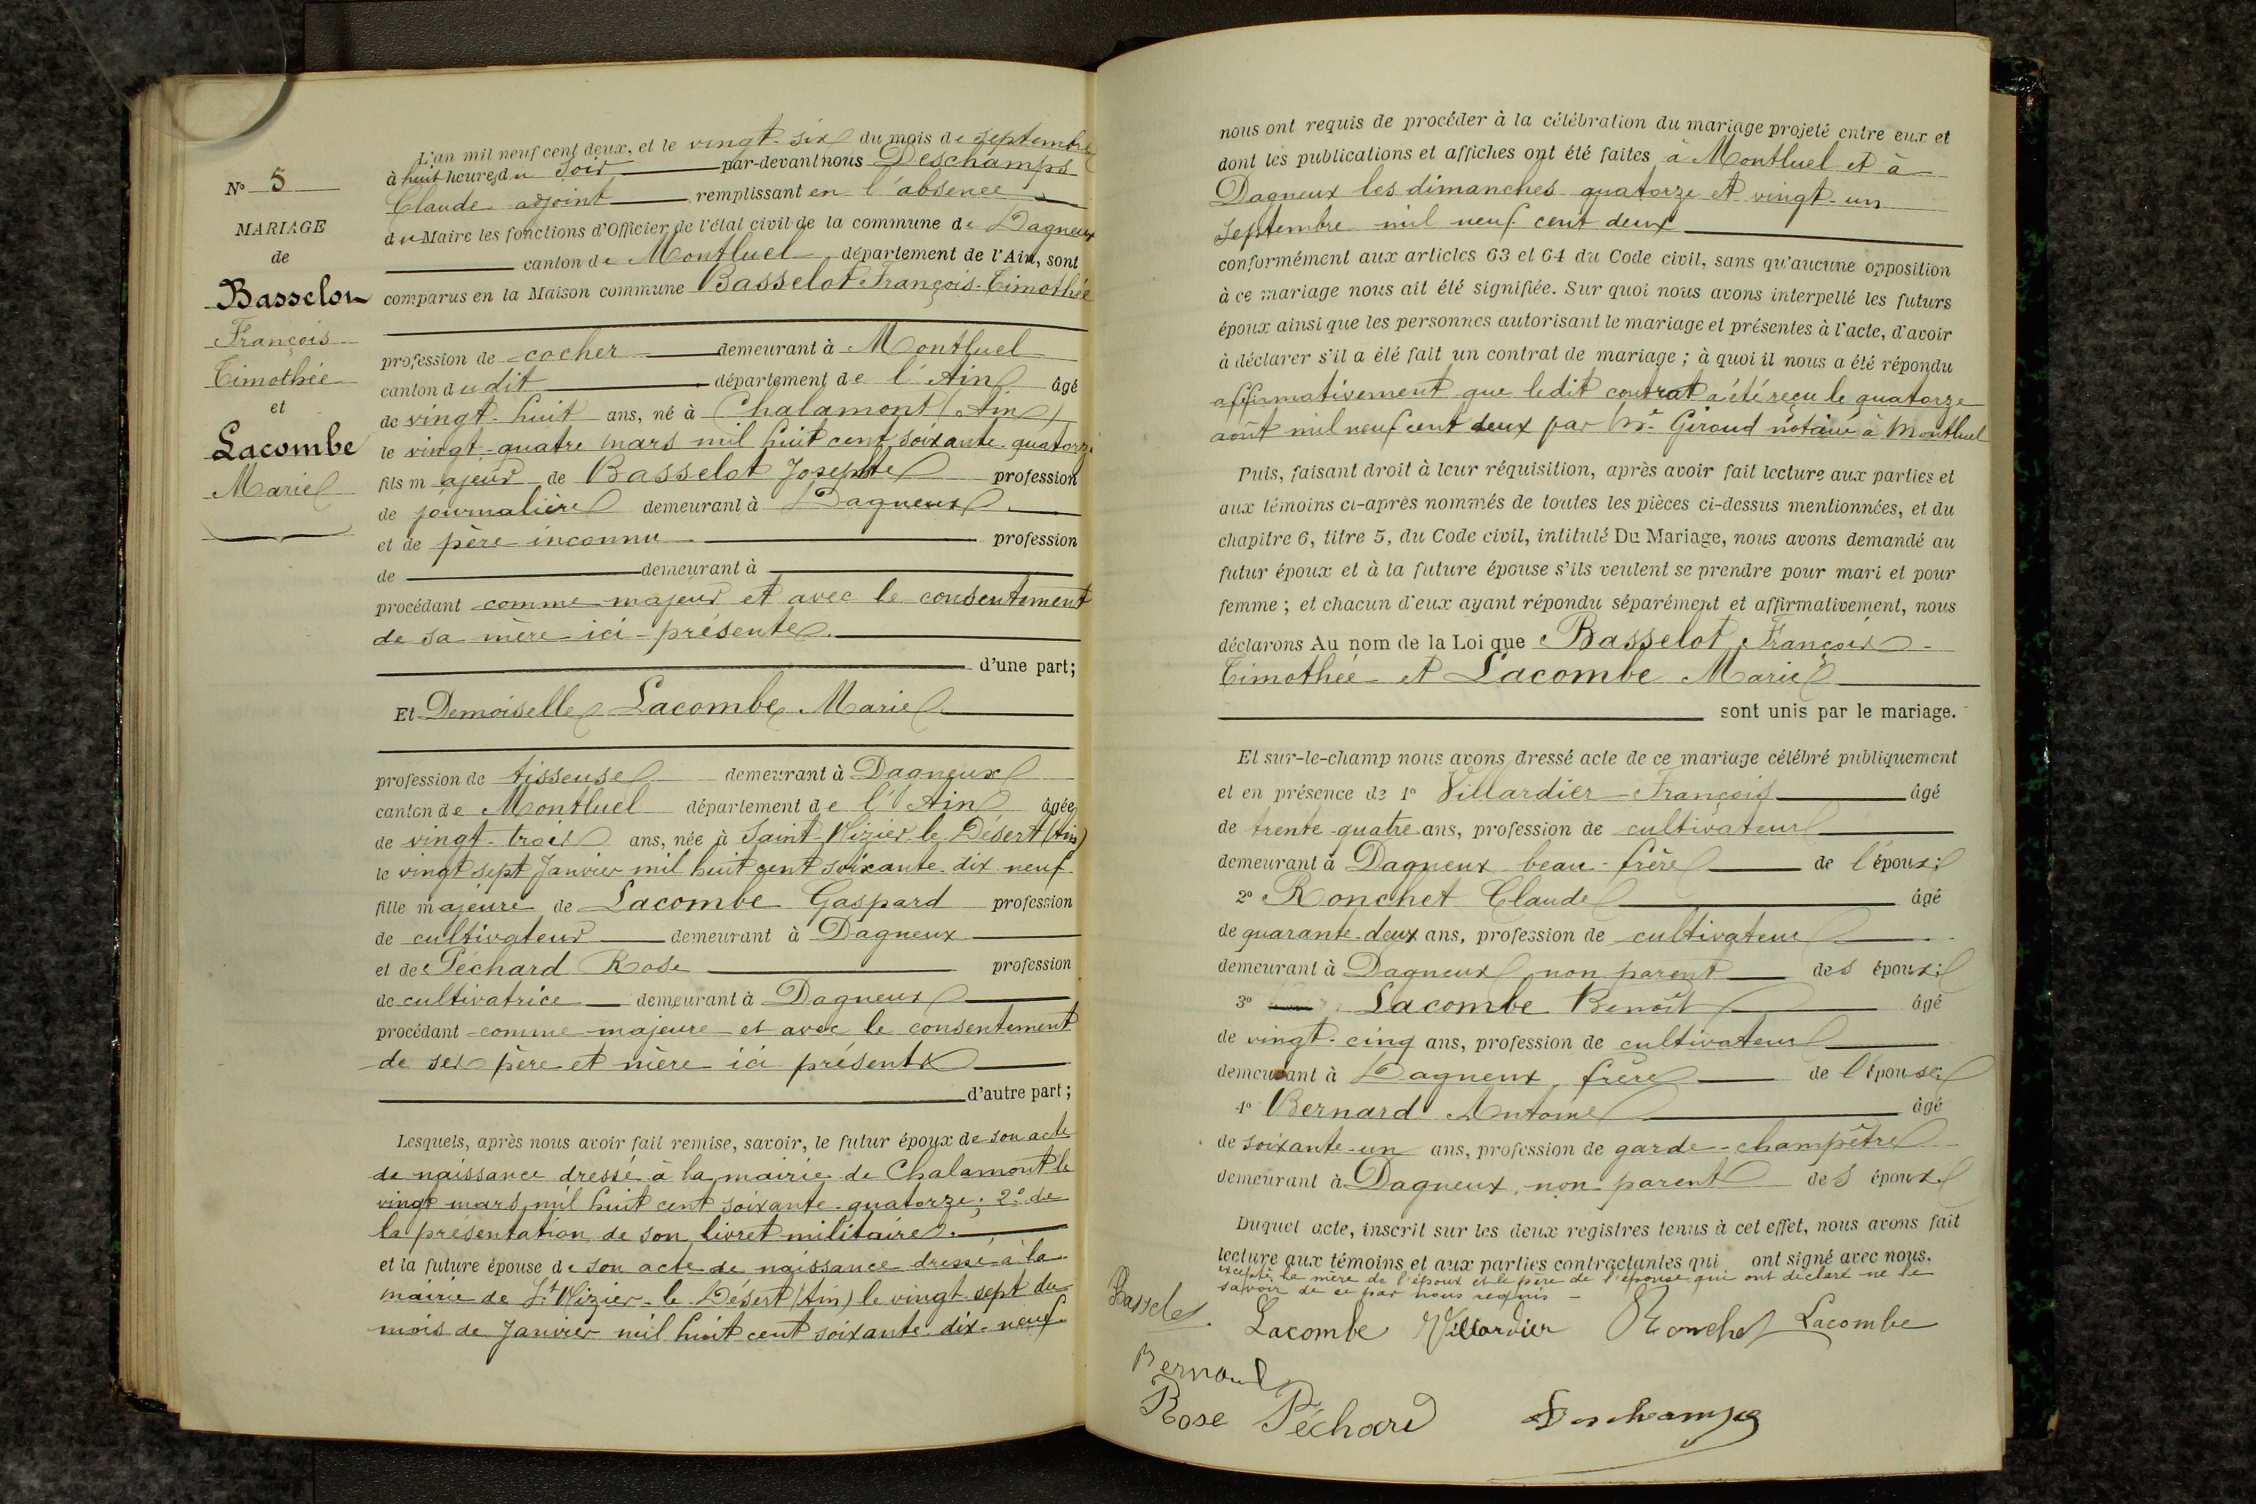 N° 5
MARIAGE
de
Basselot
François
Timothée
et
Lacombe
Marie
L'an mil neuf cent deux, et le vingt-six du mois de septembre
à huit heures du soir par-devant nous Deschamps
Claude adjoint remplissant en l'absence
du Maire les fonctions d'Officier de l'état civil de la commune de Dagneux
canton de Montluel département de l'Ain, sont
comparus en la Maison commune Basselot François-Timothée
profession de cocher demeurant à Montluel
canton dudit département de l'Ain âgé
de vingt-huit ans, né à Chalamont (Ain)
le vingt-quatre mars mil huit cent soixante-quatorze
fils majeur de Basselot Josephte profession
de journalière demeurant à Dagneux
et de père inconnu profession
de demeurant à
procédant comme majeur et avec le consentement
de sa mère ici-présente
d'une part;
Et Demoiselle Lacombe Marie
profession de tisseuse demeurant à Dagneux
canton de Montluel département de l'Ain âgée
de vingt-trois ans, née à Saint-Nizier-le-Désert (Ain)
le vingt sept Janvier mil huit cent soixante-dix-neuf
fille majeure de Lacombe Gaspard profession
de cultivateur demeurant à Dagneux
et de Péchard Rose profession
de cultivatrice demeurant à Dagneux
procédant comme majeure et avec le consentement
de ses père et mère ici présents
d'autre part;
Lesquels, après nous avoir fait remise, savoir, le futur époux de son acte
de naissance dressé à la mairie de Chalamont le
vingt mars mil huit cent soixante-quatorze; 2° de
la présentation de son livret militaire.
et la future épouse de son acte de naissance dressé à la
mairie de St Nizier-le-Désert (Ain) le vingt-sept du
mois de Janvier mil huit cent soixante-dix-neuf
nous ont requis de procéder à la célébration du mariage projeté entre eux et
dont les publications et affiches ont été faites à Montluel et à
Dagneux les dimanches quatorze et vingt-un
septembre mil neuf cent deux
conformément aux articles 63 et 64 du Code civil, sans qu'aucune opposition
à ce mariage nous ait été signifiée. Sur quoi nous avons interpellé les futurs
époux ainsi que les personnes autorisant le mariage et présentes à l'acte, d'avoir
à déclarer s'il a été fait un contrat de mariage; à quoi il nous a été répondu
affirmativement que ledit contrat a été reçu le quatorze
août mil neuf cent deux par Me Giroud notaire à Montluel
Puis, faisant droit à leur réquisition, après avoir fait lecture aux parties et
aux témoins ci-après nommés de toutes les pièces ci-dessus mentionnées, et du
chapitre 6, titre 5, du Code civil, intitulé Du Mariage, nous avons demandé au
futur époux et à la future épouse s'ils veulent se prendre pour mari et pour
femme; et chacun d'eux ayant répondu séparément et affirmativement, nous
déclarons Au nom de la Loi que Basselot François
Timothée et Lacombe Marie
sont unis par le mariage.
Et sur-le-champ nous avons dressé acte de ce mariage célébré publiquement
et en présence de 1° Villardier François âgé
de trente-quatre ans, profession de cultivateur
demeurant à Dagneux beau-frère de l'époux;
2° Ronchet Claude âgé
de quarante-deux ans, profession de cultivateur
demeurant à Dagneux non parent des époux;
3° Lacombe Benoît âgé
de vingt-cinq ans, profession de cultivateur
demeurant à Dagneux, frère de l'épouse;
4° Bernard Antoine âgé
de soixante-un ans, profession de garde-champêtre
demeurant à Dagneux, non parent des époux
Duquel acte, inscrit sur les deux registres tenus à cet effet, nous avons fait
lecture aux témoins et aux parties contractantes qui ont signé avec nous.
excepté la mère de l'époux et le père de l'épouse qui ont déclaré ne le
savoir de ce par nous requis
Basselot Lacombe Villardier Ronchet Lacombe
Bernard
Rose Péchard Deschamps